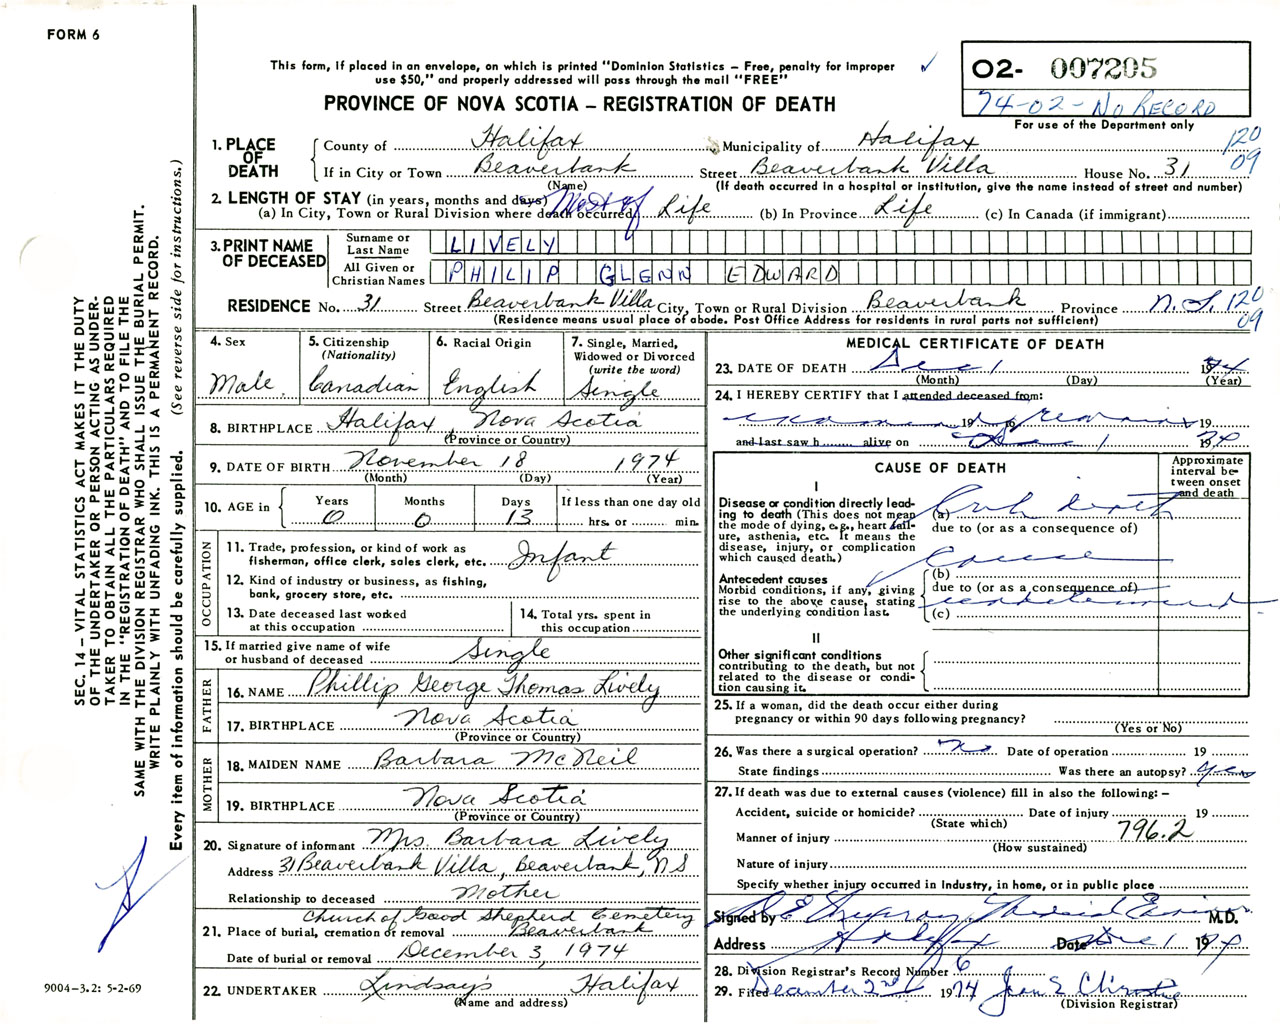 FORM 6
This form, if placed in an envelope, on which is printed "Dominion Statistics – Free, penalty for improper
use $50," and properly addressed will pass through the mail "FREE"
✓
O2- 007205
74-02-No Record
For use of the Department only
PROVINCE OF NOVA SCOTIA – REGISTRATION OF DEATH
1. PLACE OF DEATH
County of Halifax Municipality of Halifax 120
If in City or Town Beaverbank Street Beaverbank Villa House No. 31 09
(Name) (If death occurred in a hospital or institution, give the name instead of street and number)
2. LENGTH OF STAY (in years, months and days) Most of
(a) In City, Town or Rural Division where death occurred Life (b) In Province Life (c) In Canada (if immigrant)
3. PRINT NAME OF DECEASED
Surname or Last Name LIVELY
All Given or Christian Names PHILIP GLENN EDWARD
RESIDENCE No. 31 Street Beaverbank Villa City, Town or Rural Division Beaverbank Province N.S. 120
09
(Residence means usual place of abode. Post Office Address for residents in rural parts not sufficient)
4. Sex
Male.
5. Citizenship
(Nationality)
Canadian
6. Racial Origin
English
7. Single, Married,
Widowed or Divorced
(write the word)
Single
8. BIRTHPLACE Halifax Nova Scotia
(Province or Country)
9. DATE OF BIRTH November 18 1974
(Month) (Day) (Year)
10. AGE in
Years
0
Months
0
Days
13
If less than one day old
hrs. or min.
OCCUPATION
11. Trade, profession, or kind of work as
fisherman, office clerk, sales clerk, etc. Infant
12. Kind of industry or business, as fishing,
bank, grocery store, etc.
13. Date deceased last worked
at this occupation
14. Total yrs. spent in
this occupation
15. If married give name of wife
or husband of deceased Single
FATHER
16. NAME Phillip George Thomas Lively
17. BIRTHPLACE Nova Scotia
(Province or Country)
MOTHER
18. MAIDEN NAME Barbara McNeil
19. BIRTHPLACE Nova Scotia
(Province or Country)
20. Signature of informant Mrs. Barbara Lively
Address 31 Beaverbank Villa, Beaverbank, NS
Relationship to deceased Mother
Church of Good Shepherd Cemetery
21. Place of burial, cremation or removal Beaverbank
Date of burial or removal December 3, 1974
22. UNDERTAKER Lindsay's Halifax
(Name and address)
MEDICAL CERTIFICATE OF DEATH
23. DATE OF DEATH Dec 1 1974
(Month) (Day) (Year)
24. I HEREBY CERTIFY that I attended deceased from:
19 to remains 19
and last saw h alive on Dec 1 1974
CAUSE OF DEATH
Approximate
interval be-
tween onset
and death
I
Disease or condition directly lead-
ing to death (This does not mean
the mode of dying, e.g., heart fail-
ure, asthenia, etc. It means the
disease, injury, or complication
which caused death.)
(a) Crib death
due to (or as a consequence of)
cause
Antecedent causes
Morbid conditions, if any, giving
rise to the above cause, stating
the underlying condition last.
(b)
due to (or as a consequence of)
undetermined
(c)
II
Other significant conditions
contributing to the death, but not
related to the disease or condi-
tion causing it.
25. If a woman, did the death occur either during
pregnancy or within 90 days following pregnancy?
(Yes or No)
26. Was there a surgical operation? No Date of operation 19
State findings Was there an autopsy? Yes
27. If death was due to external causes (violence) fill in also the following: –
Accident, suicide or homicide? Date of injury 19
(State which)
Manner of injury 796.2
(How sustained)
Nature of injury
Specify whether injury occurred in industry, in home, or in public place
Signed by M.D.
Address Halifax Date Dec 1 1974
28. Division Registrar's Record Number 6
29. Filed December 2nd 1974 Jean E
(Division Registrar)
SEC. 14 – VITAL STATISTICS ACT MAKES IT THE DUTY
OF THE UNDERTAKER OR PERSON ACTING AS UNDER-
TAKER TO OBTAIN ALL THE PARTICULARS REQUIRED
IN THE "REGISTRATION OF DEATH" AND TO FILE THE
SAME WITH THE DIVISION REGISTRAR WHO SHALL ISSUE THE BURIAL PERMIT.
WRITE PLAINLY WITH UNFADING INK. THIS IS A PERMANENT RECORD.
Every item of information should be carefully supplied. (See reverse side for instructions.)
9004-3.2: 5-2-69